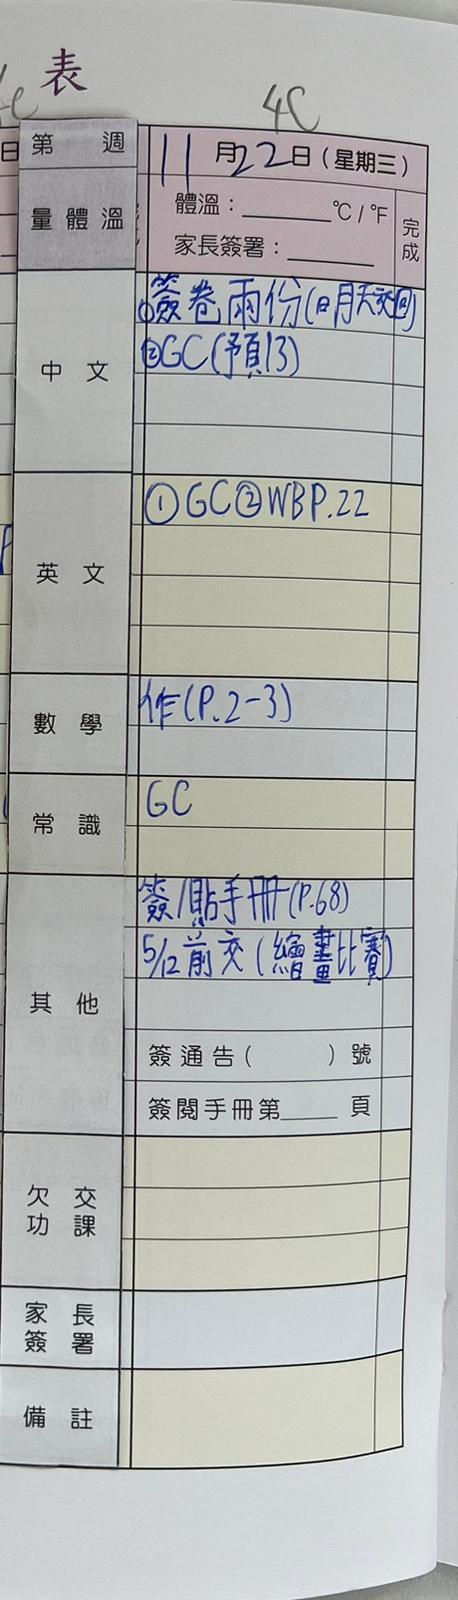 表
4C
第 週
11月22日（星期三）
日
量體溫
體溫：________°C / °F
家長簽署：________
完成
中文
①簽卷兩份(明天交回)
②GC(預13)
英文
①GC②WBP.22
數學
作(P.2-3)
常識
GC
其他
簽/貼手冊(P.68)
5/12前交(繪畫比賽)
簽通告(　　　)號
簽閱手冊第_____頁
欠交
功課
家長
簽署
備註